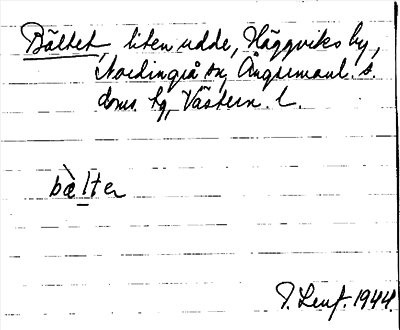 Bältet, liten udde, Häggviks by,
Nordingrå sn, Ångermanl. s.
doms. hg, Västern. l.
bèlter
P. Lenf. 1944.